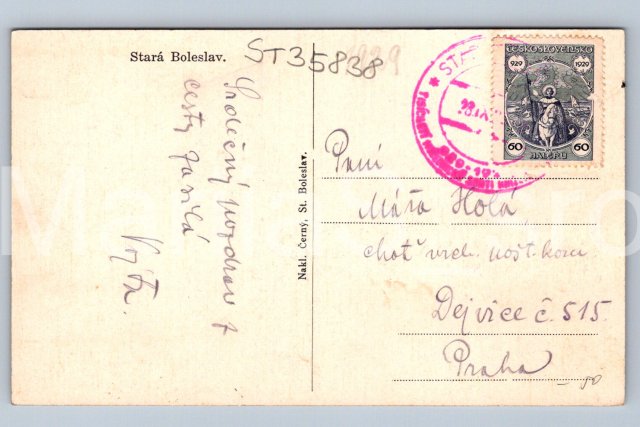 Stará Boleslav.
ST35838
1929
Srdečný pozdrav z
cesty zasílá
Nakl. Černý, St. Boleslav.
ČESKOSLOVENSKO
929 1929
60 HALÉŘŮ 60
Paní
Máňa Holá
choť vrch. pošt. kom
Dejvice č. 515.
Praha